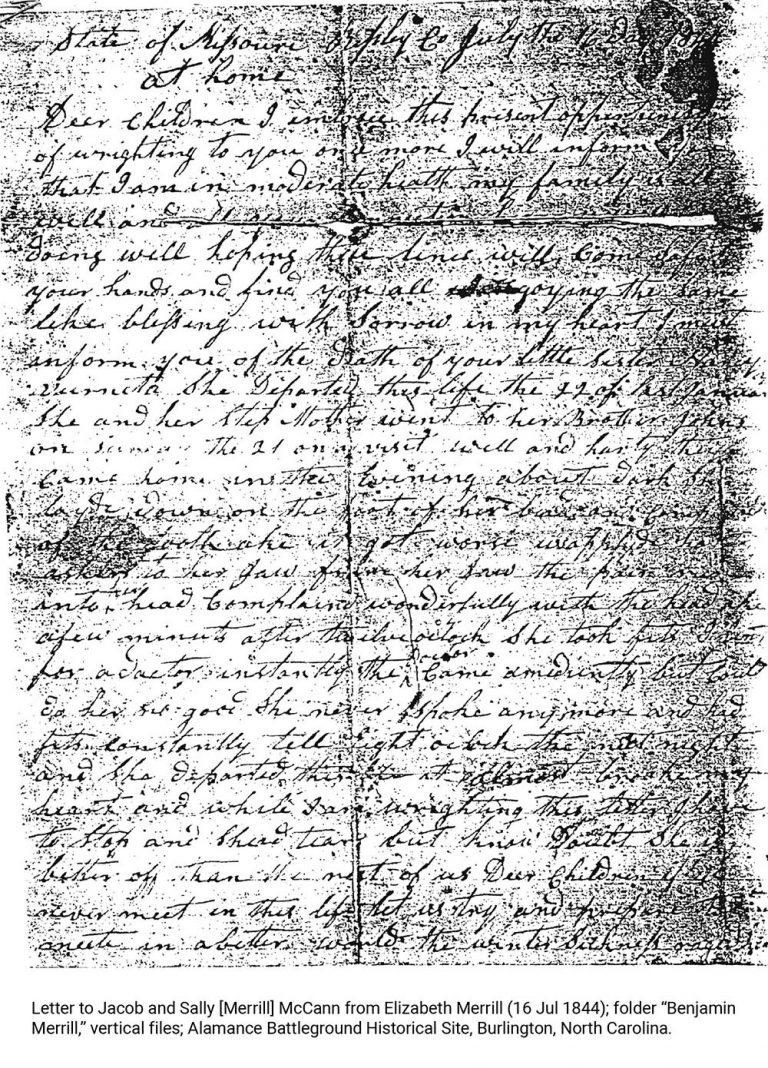 State of Missouri Ripley Co July the 16 Day 1844
at home
Deer Children I embrace this present opportunity
of wrighting to you one more I will inform you
that I am in moderate health my family is all
well and all
doing well hoping these lines will Come safe to
your hands and find you all goying the same
like blessing with Sorrow in my heart I must
inform you of the Death of your little sister
She Departed this life the 22 of last January
She and her Step Mother went to her Brother Johns
on sunday the 21 on a visit well and harty they
Came home in the Evening about dark She
layde down on the foot of her bead and
of the tooth ake it got worse wrapped
to her Jaw from her Jaw the pain
into her head Complaind wonderfully with the head ake
a few minuts after twelve oclock She took fits
for a doctor instantly the Doctor Came amediently but Could
do her no good She never Spoke any more and had
fits constantly tell Eight oclock the next night
and She departed this life it allmost broake my
heart and while I am wrighting this letter I have
to Stop and Shead tears but know Doubt She is
better off than the rest of us Deer Children if we
never meet in this life let us try and prepare to
meete in a better world the winter Sickness
Letter to Jacob and Sally [Merrill] McCann from Elizabeth Merrill (16 Jul 1844); folder “Benjamin
Merrill,” vertical files; Alamance Battleground Historical Site, Burlington, North Carolina.